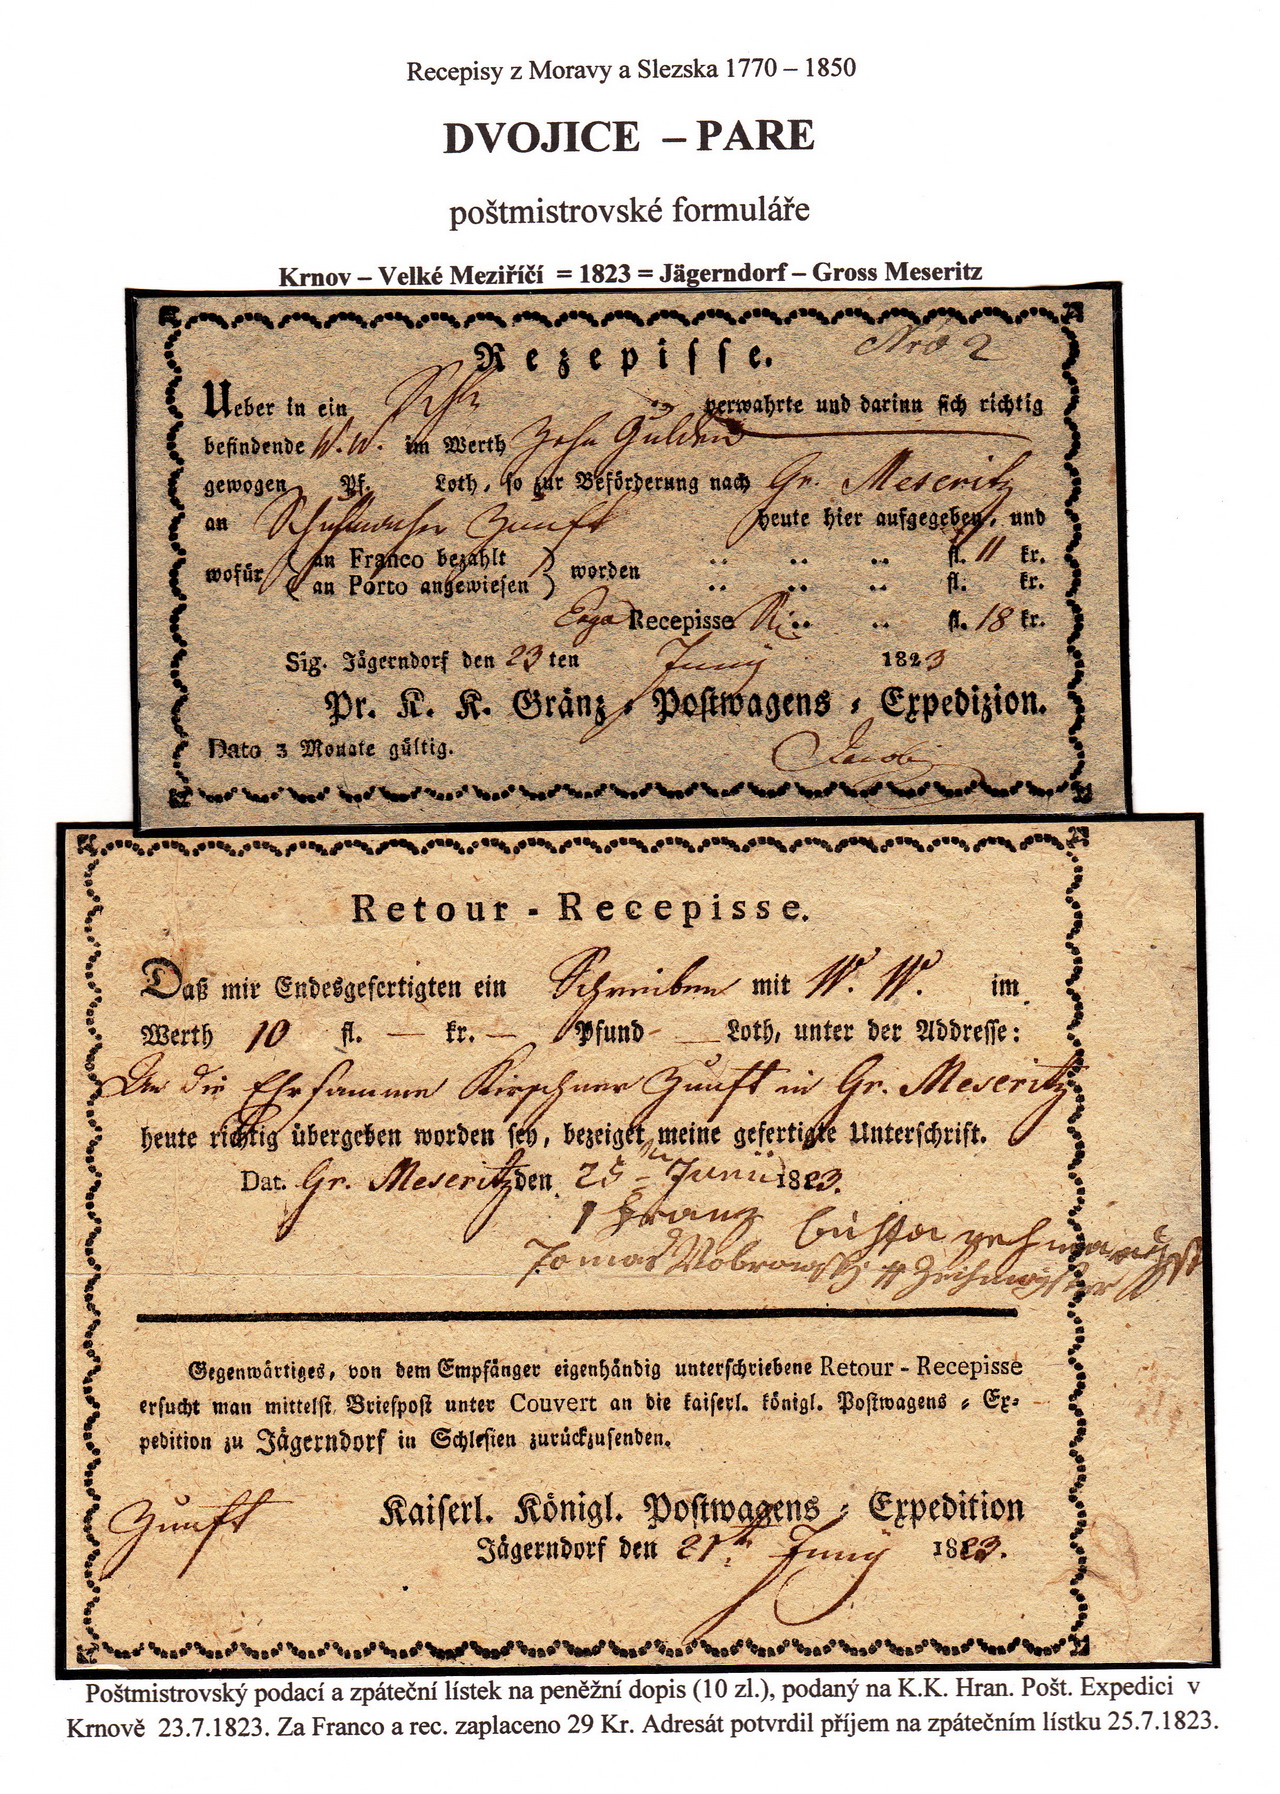 Recepisy z Moravy a Slezska 1770 – 1850
DVOJICE – PARE
poštmistrovské formuláře
Krnov – Velké Meziříčí = 1823 = Jägerndorf – Gross Meseritz
Nro 2
Rezepisse.
Ueber in ein verwahrte und darinn sich richtig
befindende W. W. im Werth Zehn Gulden
gewogen Pf. Loth, so zur Beförderung nach Gr. Meseritz
an Zunft heute hier aufgegeben, und
wofür ( an Franco bezahlt ) worden .. .. .. fl. 11 kr.
( an Porto angewiesen ) .. .. .. fl. kr.
Recepisse .. .. fl. 18 kr.
Sig. Jägerndorf den 23 ten Juny 1823
Pr. K. K. Gränz-Postwagens-Expedizion.
Dato 3 Monate gültig.
Retour - Recepisse.
Daß mir Endesgefertigten ein Schreiben mit W. W. im
Werth 10 fl. — kr. — Pfund — Loth, unter der Addresse:
An die Ehrsamme Kirschner Zunft in Gr. Meseritz
heute richtig übergeben worden sey, bezeiget meine gefertigte Unterschrift.
Dat. Gr. Meseritz den 25 Juni 1823.
Franz
Tomas
Gegenwärtiges, von dem Empfänger eigenhändig unterschriebene Retour - Recepisse
ersucht man mittelst Briefpost unter Couvert an die kaiserl. königl. Postwagens-Ex-
pedition zu Jägerndorf in Schlesien zurückzusenden.
Zunft
Kaiserl. Königl. Postwagens-Expedition
Jägerndorf den 21 Juny 1823.
Poštmistrovský podací a zpáteční lístek na peněžní dopis (10 zl.), podaný na K.K. Hran. Pošt. Expedici v
Krnově 23.7.1823. Za Franco a rec. zaplaceno 29 Kr. Adresát potvrdil příjem na zpátečním lístku 25.7.1823.